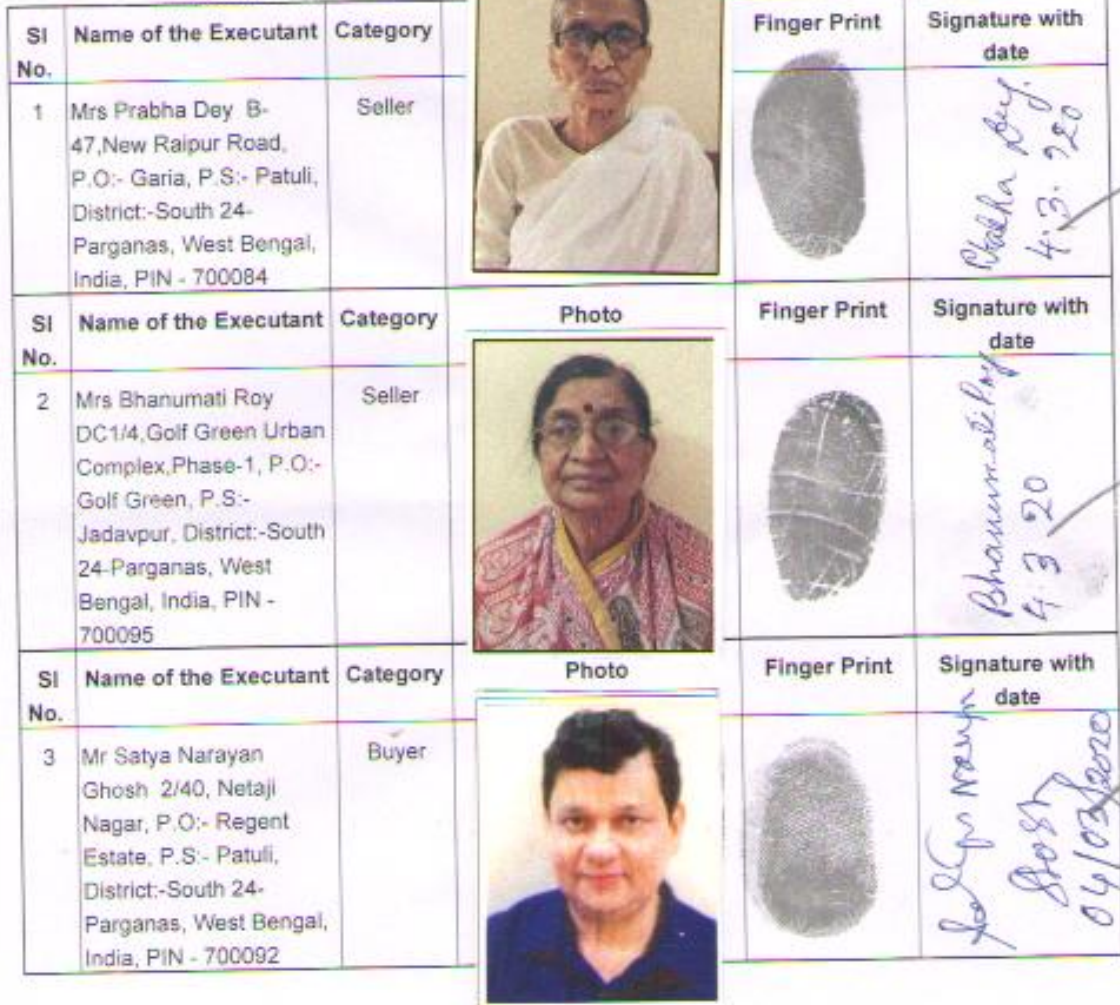 Sl No.
Name of the Executant
Category
Finger Print
Signature with date
1
Mrs Prabha Dey B-
47,New Raipur Road,
P.O:- Garia, P.S:- Patuli,
District:-South 24-
Parganas, West Bengal,
India, PIN - 700084
Seller
Prabha Dey.
4.3.20
Sl No.
Name of the Executant
Category
Photo
Finger Print
Signature with date
2
Mrs Bhanumati Roy
DC1/4,Golf Green Urban
Complex,Phase-1, P.O:-
Golf Green, P.S:-
Jadavpur, District:-South
24-Parganas, West
Bengal, India, PIN -
700095
Seller
Bhanumati Roy
4.3.20
Sl No.
Name of the Executant
Category
Photo
Finger Print
Signature with date
3
Mr Satya Narayan
Ghosh 2/40, Netaji
Nagar, P.O:- Regent
Estate, P.S:- Patuli,
District:-South 24-
Parganas, West Bengal,
India, PIN - 700092
Buyer
Satya Narayan
Ghosh
04/03/2020